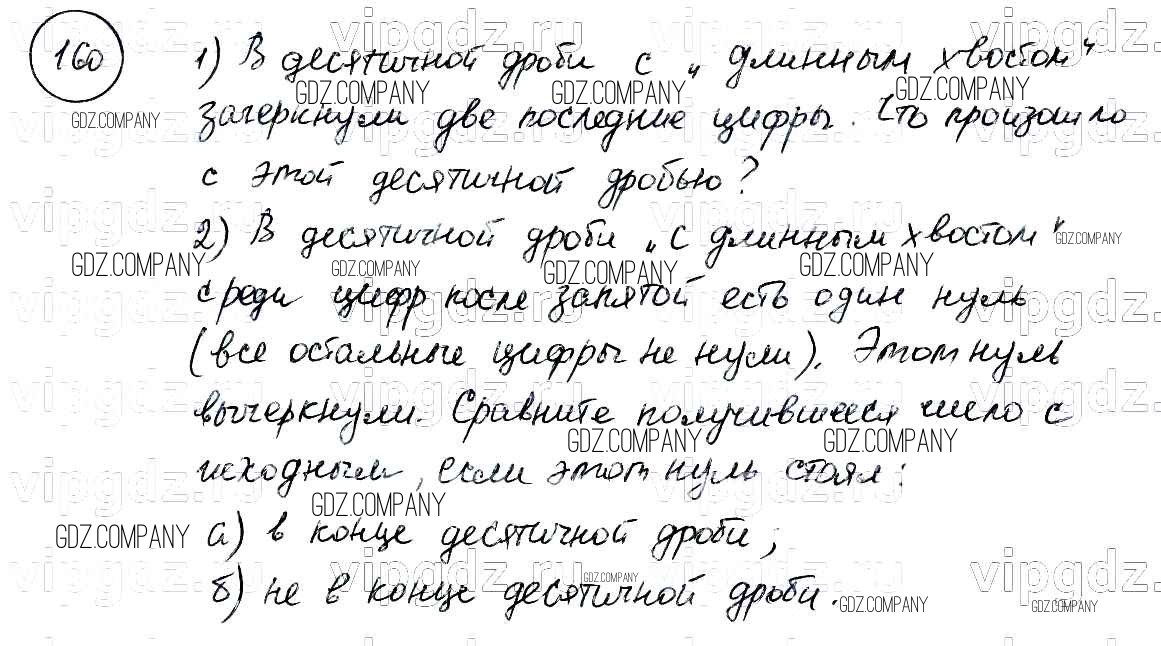 160
1) В десятичной дроби с „длинным хвостом"
зачеркнули две последние цифры. Что произошло
с этой десятичной дробью?
2) В десятичной дроби „с длинным хвостом"
среди цифр после запятой есть один нуль
(все остальные цифры не нули). Этот нуль
вычеркнули. Сравните получившееся число с
исходным, если этот нуль стоял:
а) в конце десятичной дроби;
б) не в конце десятичной дроби.
GDZ.COMPANY
vipgdz.ru